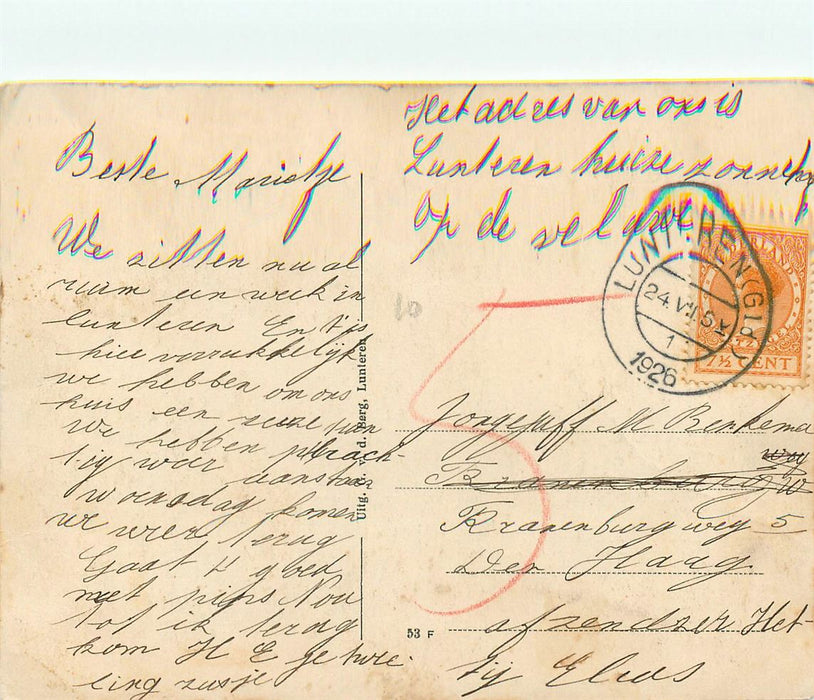 Beste Marietje
We zitten nu al
ruim een week in
lunteren En tis
hier verrukkelijk
we hebben om ons
huis een
we hebben prach-
tig weer aanstaan
woensdag komen
we weer terug
Gaat u goed
met Nou
tot ik terug
kom
ling zusje
Uitg. v. d. Berg, Lunteren
Het adres van ons is
Lunteren huize zonne
Op de
LUNTEREN (GLD)
24.VII.5
1
1926
NEDERLAND
7½ CENT
10
5
Jongejuff M Benkema
weg
Kranenburg w
Kranenburg weg 5
Den Haag
afzendster Het-
tij Elias
53 F